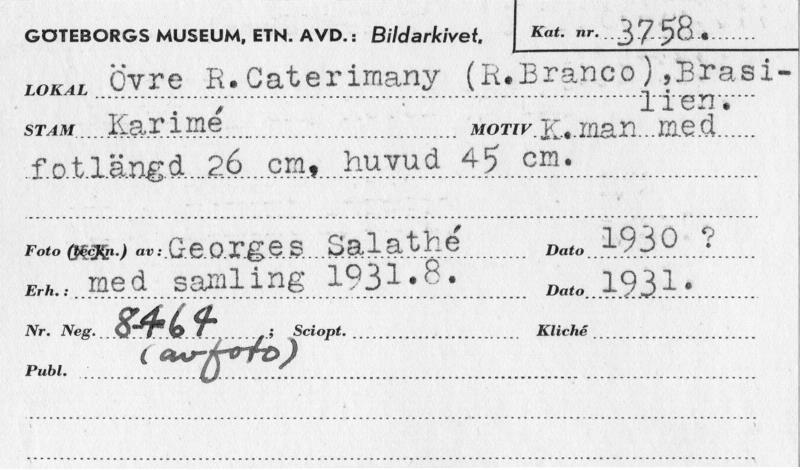 GÖTEBORGS MUSEUM, ETN. AVD.: Bildarkivet.
Kat. nr. 3758.
LOKAL Övre R.Caterimany (R.Branco),Brasi-
lien.
STAM Karimé MOTIV K.man med
fotlängd 26 cm, huvud 45 cm.
Foto (teckn.) av: Georges Salathé Dato 1930 ?
Erh.: med samling 1931.8. Dato 1931.
Nr. Neg. 8464 ; Sciopt. Kliché
(av foto)
Publ.